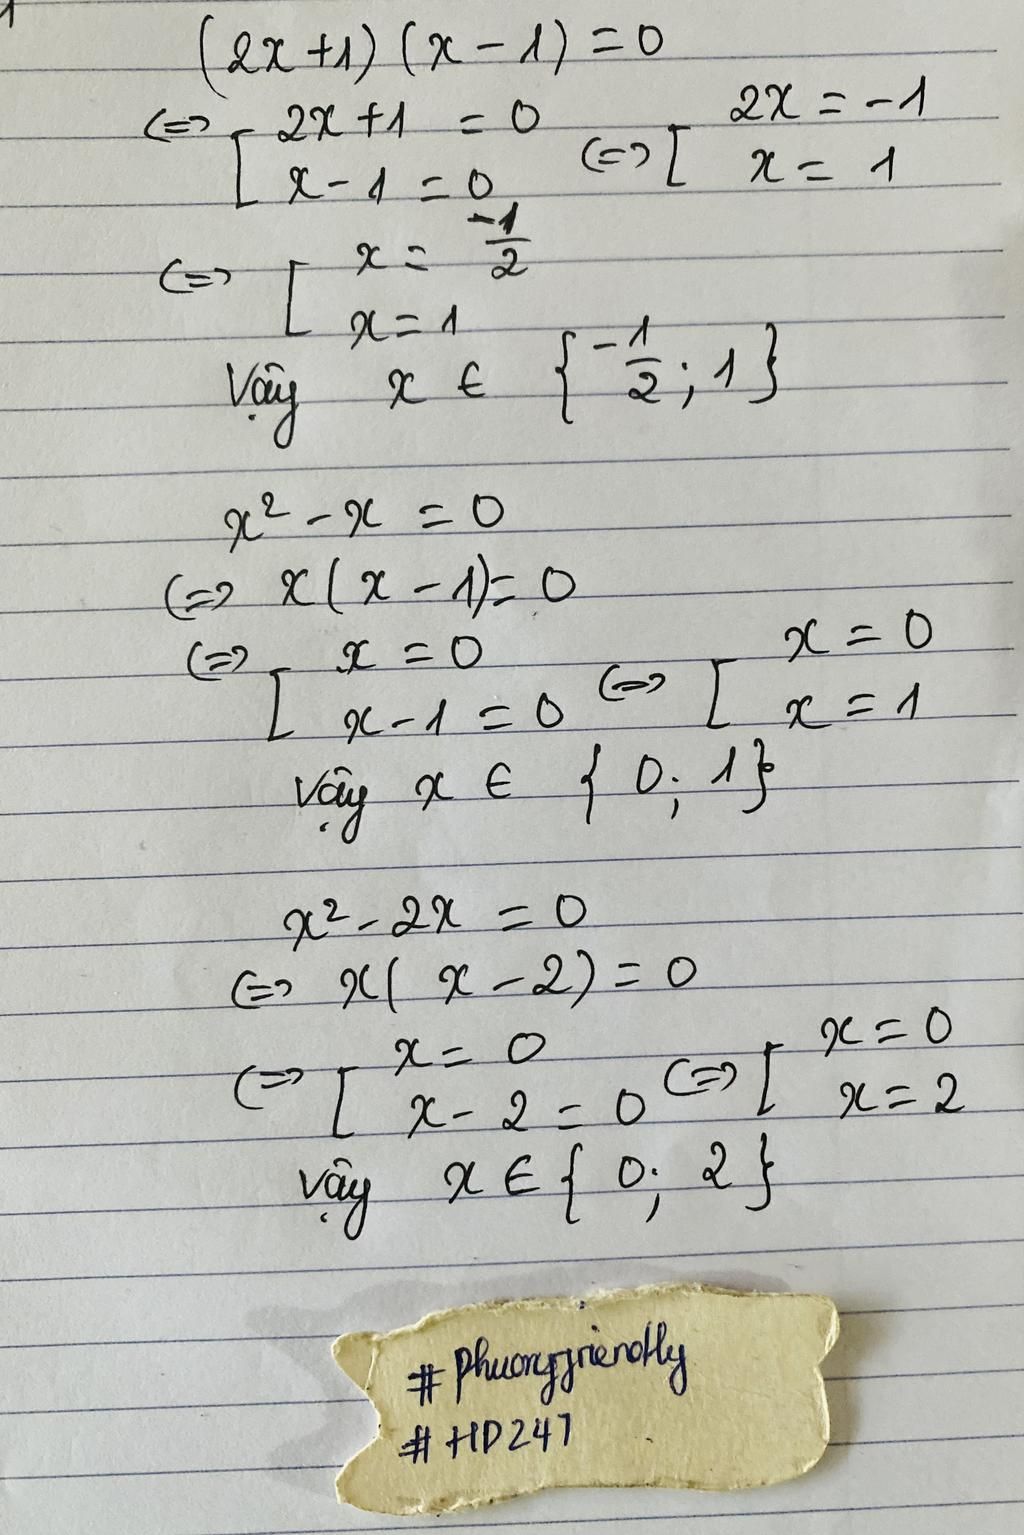 (2x+1)(x-1)=0
(=> [ 2x+1 = 0 (=> [ 2x = -1
x-1 = 0 x = 1
(=> [ x = -1/2
x = 1
Vậy x ∈ { -1/2 ; 1 }
x² - x = 0
(=> x(x-1) = 0
(=> [ x = 0 (=> [ x = 0
x-1 = 0 x = 1
Vậy x ∈ { 0; 1 }
x² - 2x = 0
(=> x(x-2) = 0
(=> [ x = 0 (=> [ x = 0
x-2 = 0 x = 2
Vậy x ∈ { 0; 2 }
#phuongfriendly
#HD247